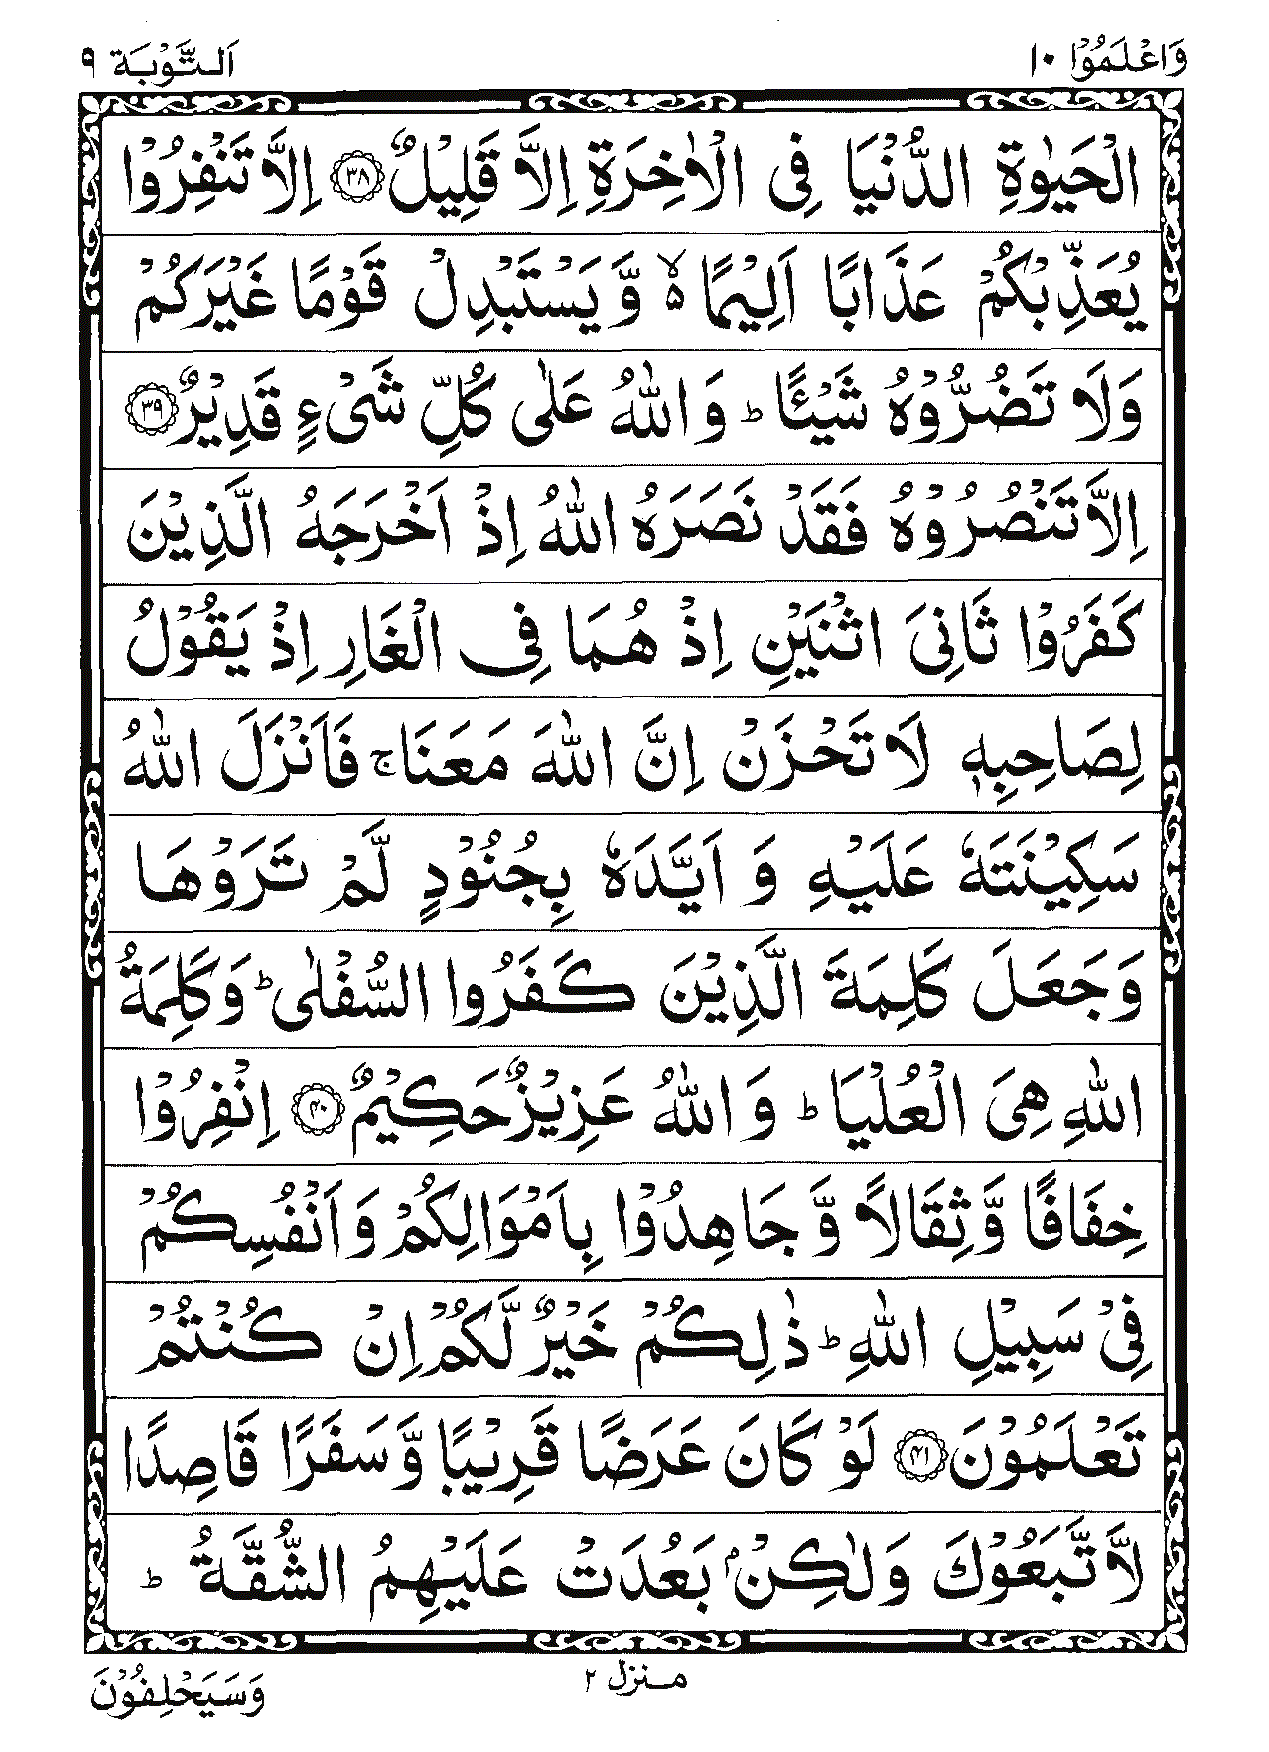 وَاعْلَمُوْۤا ١٠ اَلتَّوْبَة ٩
الْحَيٰوةِ الدُّنْيَا فِى الْاٰخِرَةِ اِلَّا قَلِيْلٌ ﴿٣٨﴾ اِلَّا تَنْفِرُوْا
يُعَذِّبْكُمْ عَذَابًا اَلِيْمًا ۙ۵ وَّيَسْتَبْدِلْ قَوْمًا غَيْرَكُمْ
وَلَا تَضُرُّوْهُ شَيْـًٔا ؕ وَ اللّٰهُ عَلٰى كُلِّ شَىْءٍ قَدِيْرٌ ﴿٣٩﴾
اِلَّا تَنْصُرُوْهُ فَقَدْ نَصَرَهُ اللّٰهُ اِذْ اَخْرَجَهُ الَّذِيْنَ
كَفَرُوْا ثَانِىَ اثْنَيْنِ اِذْ هُمَا فِى الْغَارِ اِذْ يَقُوْلُ
لِصَاحِبِهٖ لَا تَحْزَنْ اِنَّ اللّٰهَ مَعَنَا ۚ فَاَنْزَلَ اللّٰهُ
سَكِيْنَتَهٗ عَلَيْهِ وَ اَيَّدَهٗ بِجُنُوْدٍ لَّمْ تَرَوْهَا
وَجَعَلَ كَلِمَةَ الَّذِيْنَ كَفَرُوا السُّفْلٰى ؕ وَكَلِمَةُ
اللّٰهِ هِىَ الْعُلْيَا ؕ وَ اللّٰهُ عَزِيْزٌ حَكِيْمٌ ﴿٤٠﴾ اِنْفِرُوْا
خِفَافًا وَّثِقَالًا وَّ جَاهِدُوْا بِاَمْوَالِكُمْ وَاَنْفُسِكُمْ
فِىْ سَبِيْلِ اللّٰهِ ؕ ذٰلِكُمْ خَيْرٌ لَّكُمْ اِنْ كُنْتُمْ
تَعْلَمُوْنَ ﴿٤١﴾ لَوْ كَانَ عَرَضًا قَرِيْبًا وَّسَفَرًا قَاصِدًا
لَّا تَّبَعُوْكَ وَلٰكِنْۢ بَعُدَتْ عَلَيْهِمُ الشُّقَّةُ ؕ
مـنزل ٢
وَسَيَحْلِفُوْنَ